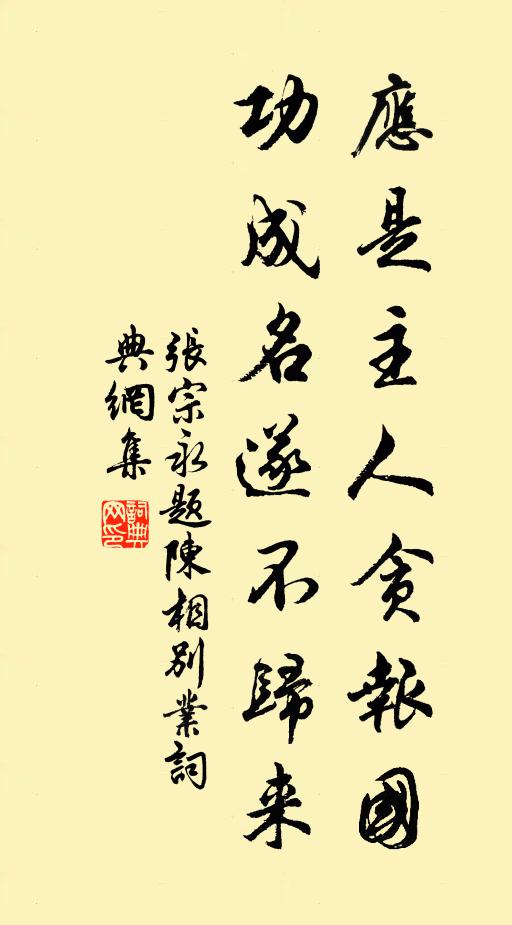 應是主人貪報國
功成名遂不歸来
張宗永題陳相別業詞
典網集
詞典
网印